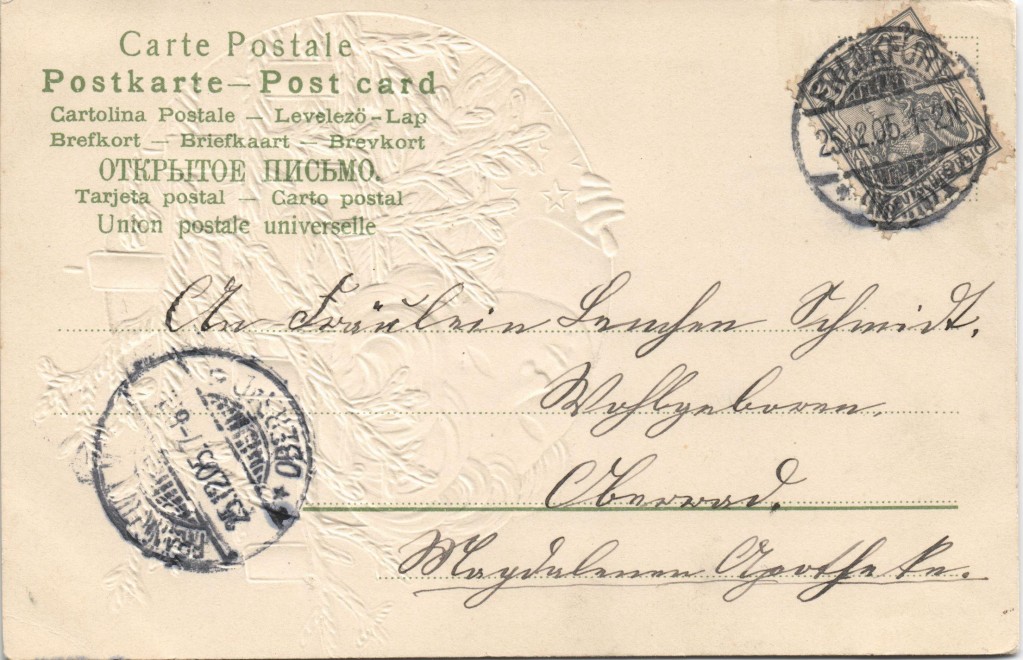 Carte Postale
Postkarte — Post card
Cartolina Postale — Levelező-Lap
Brefkort — Briefkaart — Brevkort
ОТКРЫТОЕ ПИСЬМО.
Tarjeta postal — Carto postal
Union postale universelle
FRANKFURT
25.12.05. 1-2N.
An Fräulein Lenchen Schmidt.
Wohlgeboren.
Oberrad.
Magdalenen Apotheke.
OBERRAD
25.12.05.
FRANKFURT